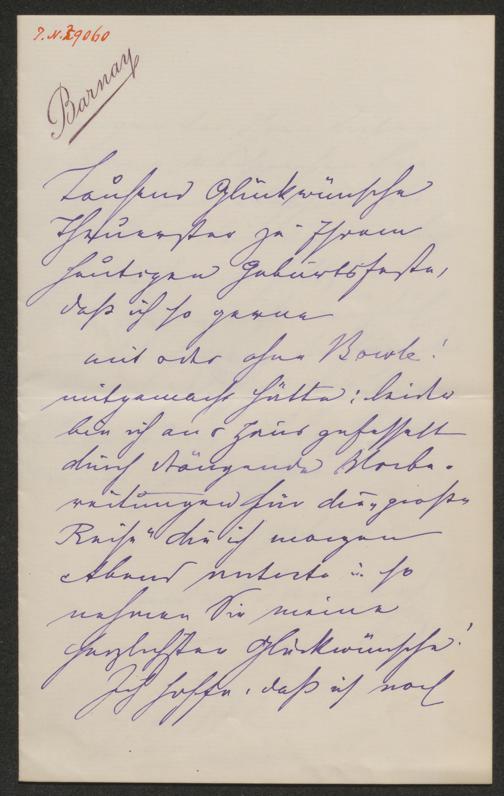 J.N. 29060
Barnay
Tausend Glückwünsche
Theuerster zu Ihrem
heutigen Geburtsfeste,
daß ich so gerne
mit oder ohne Bowle!
mitgemacht hätte; leider
bin ich ans Haus gefesselt
durch drängende Vorbe-
reitungen für die „große
Reise“ die ich morgen
Abend antrete u. so
nehmen Sie meine
herzlichsten Glückwünsche!
Ich hoffe, daß ich noch